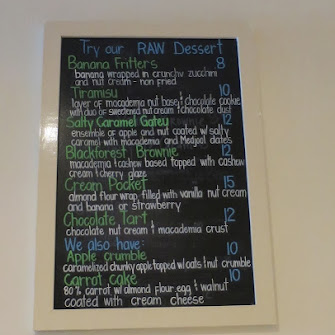 Try our RAW Dessert
Banana Fritters 8
banana wrapped in crunchy zucchini
and nut cream - non fried
Tiramisu 10
layer of macademia nut base & chocolate cookie
with duo of sweetened nut cream & chocolate dust
Salty Caramel Gatey 12
ensemble of apple and nut coated w/ salty
caramel with macademia and Medjool dates
Blackforest Brownie 12
macademia & cashew based topped with cashew
cream & cherry glaze
Cream Pocket 15
almond flour wrap filled with vanilla nut cream
and banana or strawberry
Chocolate Tart 12
chocolate nut cream & macademia crust
We also have:
Apple crumble 10
caramelized chunky apple topped w/ oats & nut crumble
Carrot cake 10
80% carrot w/ almond flour, egg & walnut
coated with cream cheese